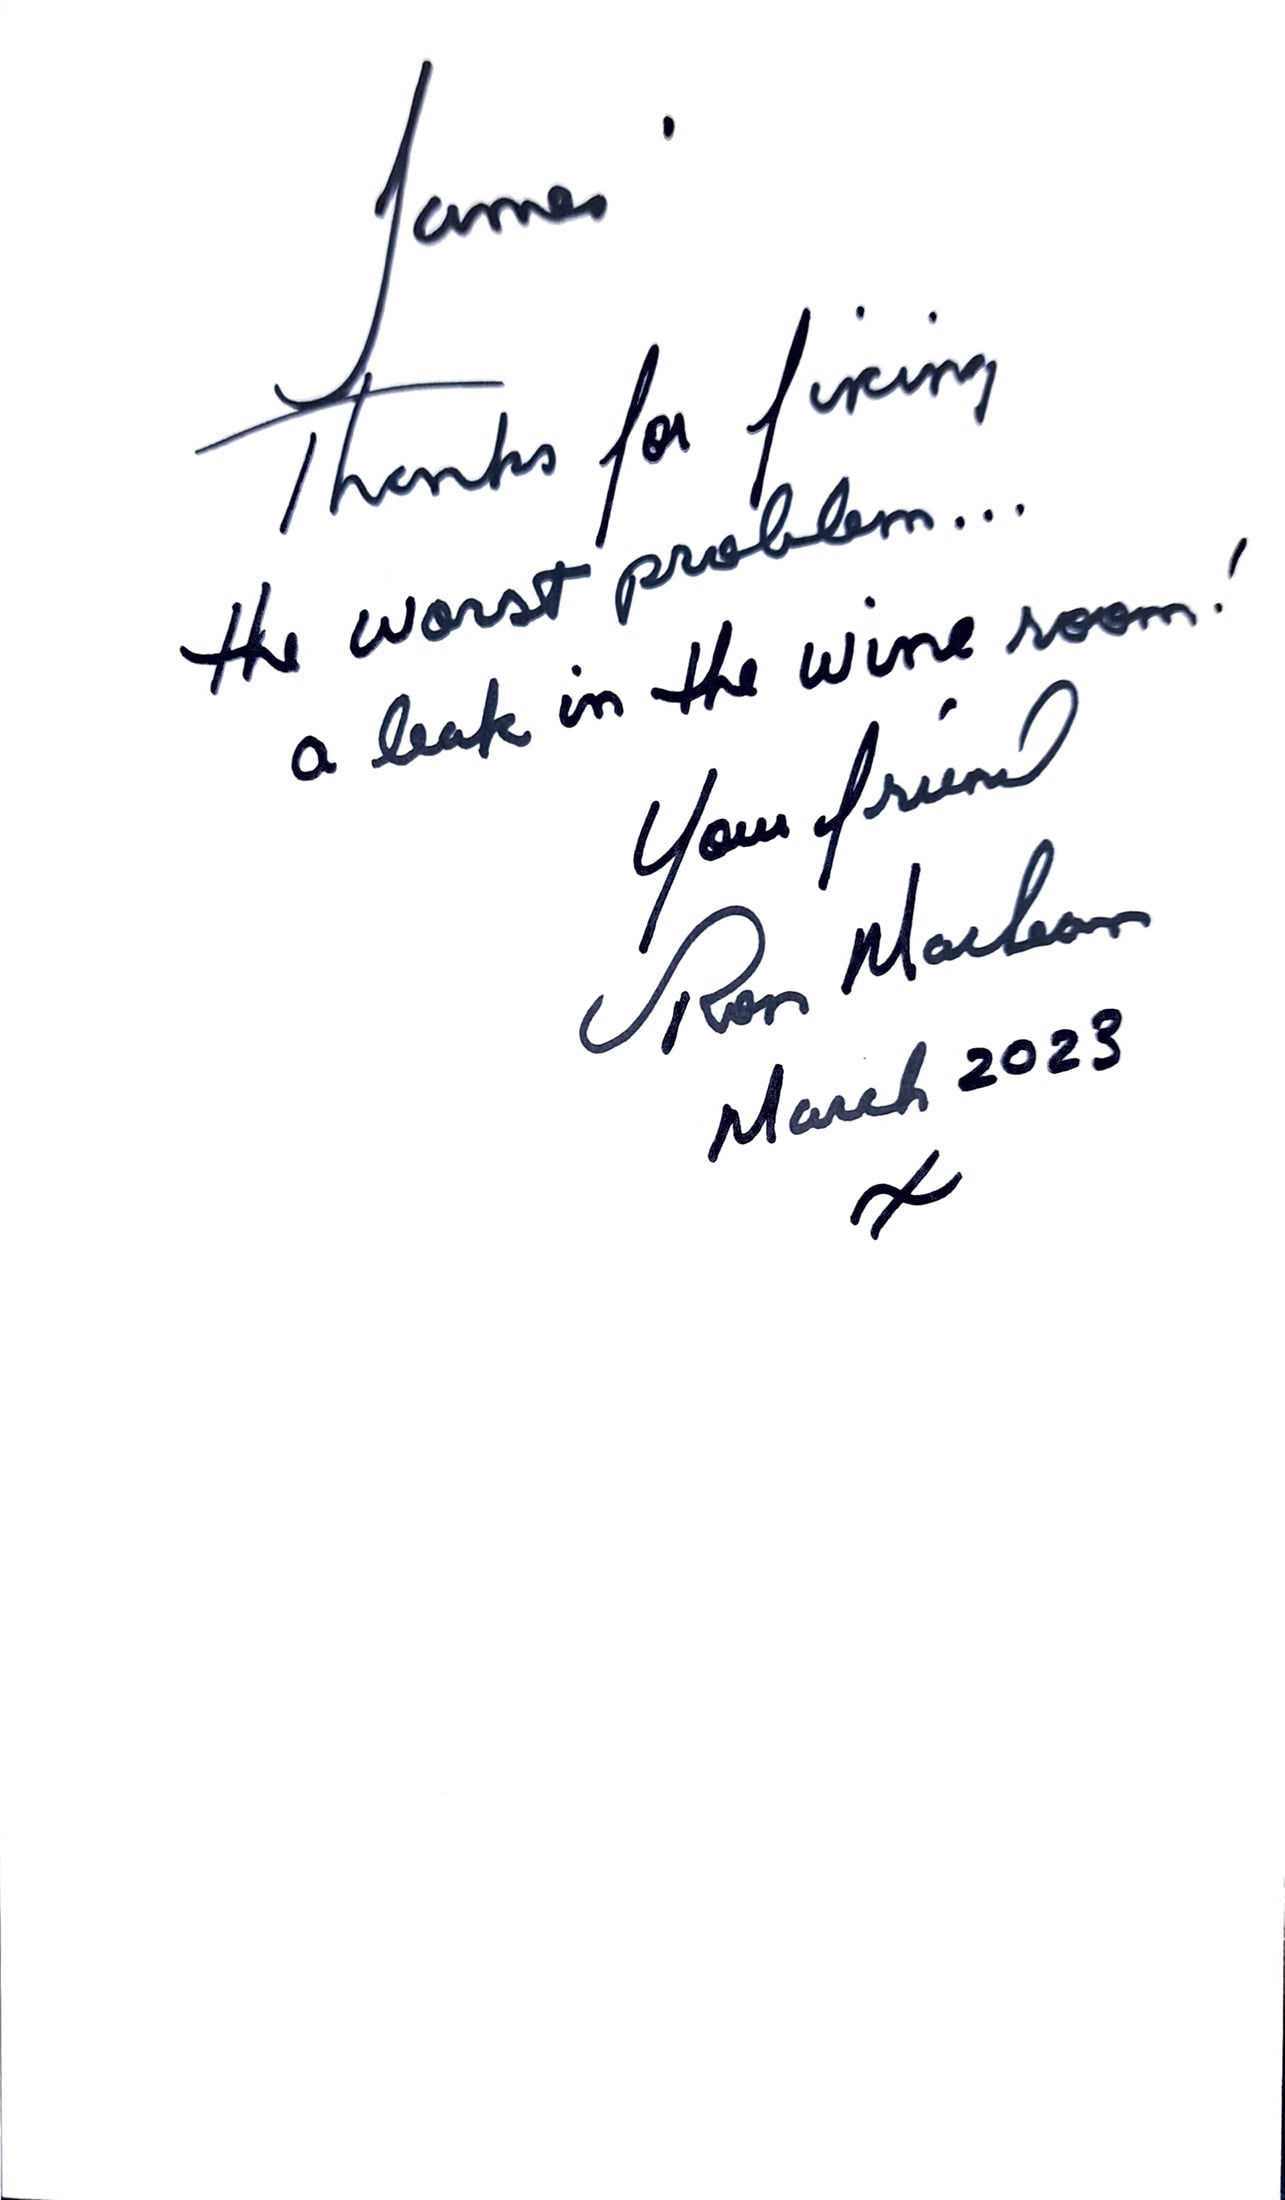 James
Thanks for fixing
the worst problem...
a leak in the wine room!
Your friend
Ron MacLean
March 2023
x